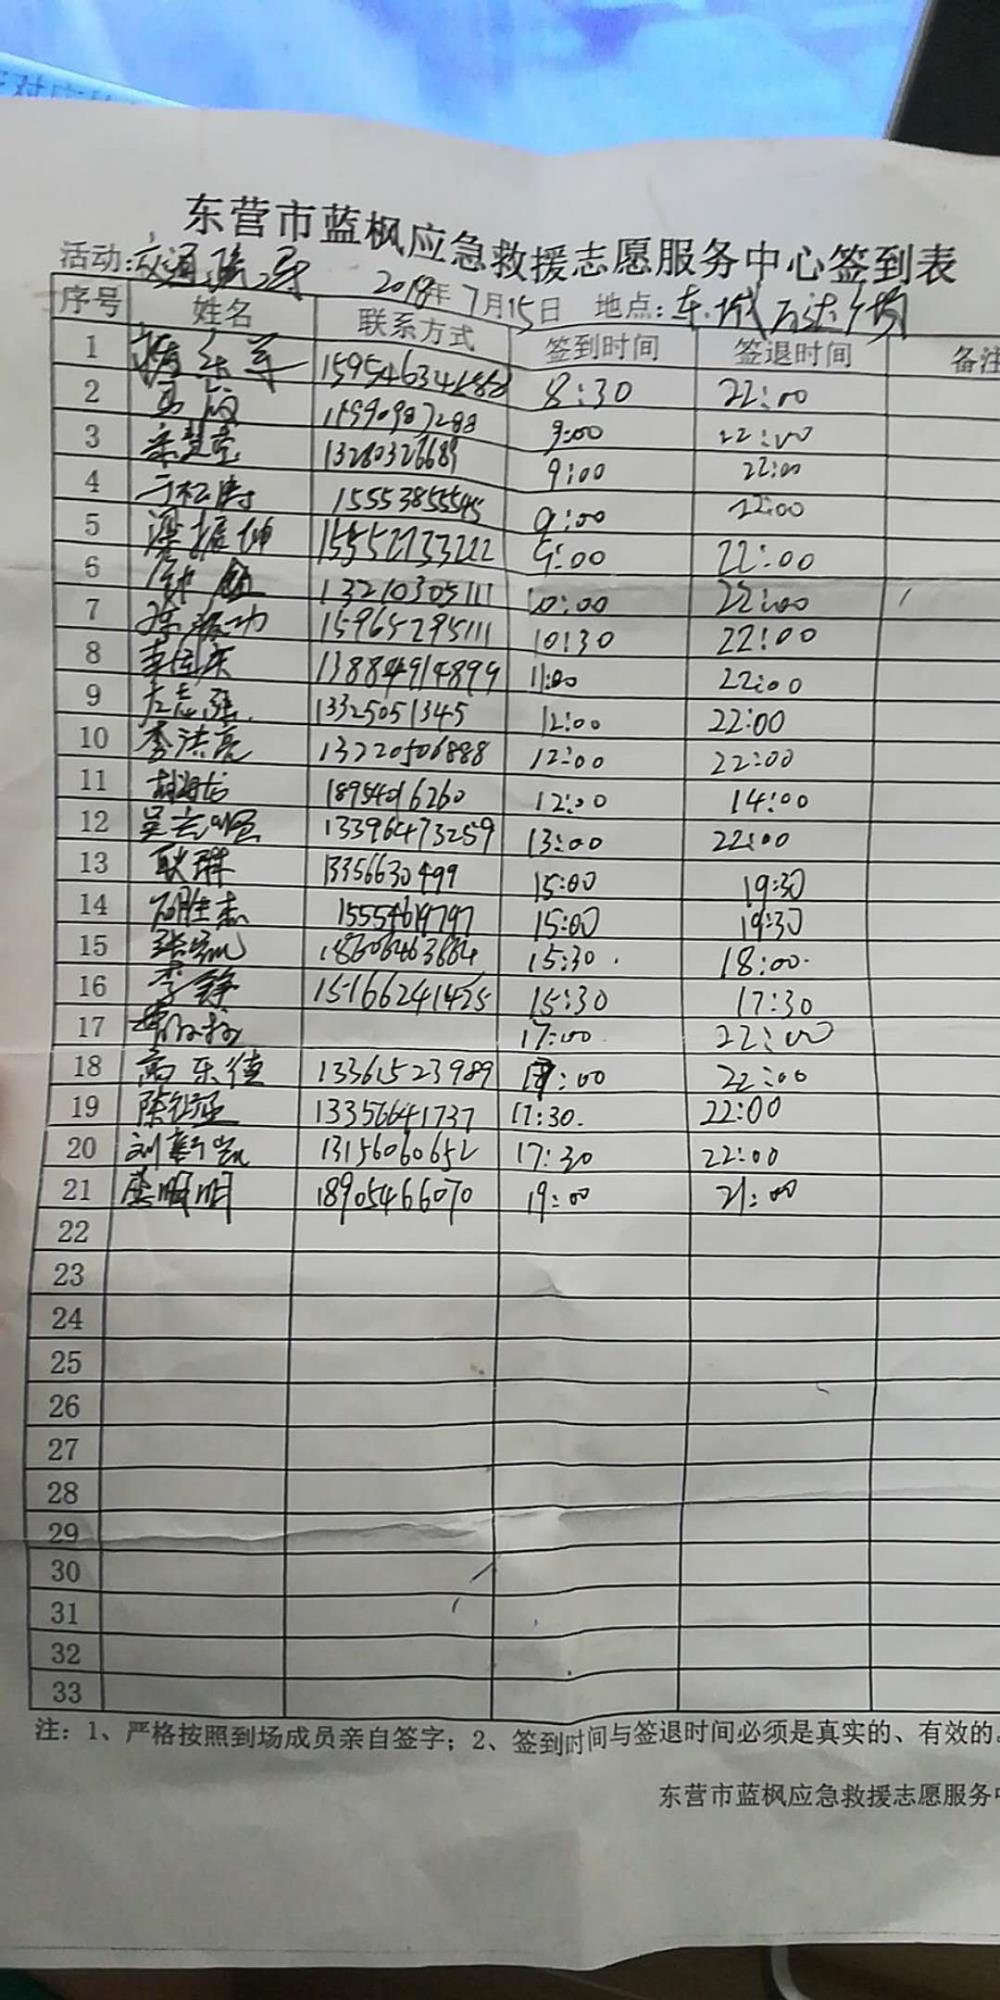 东营市蓝枫应急救援志愿服务中心签到表
活动:交通疏导 2018年7月15日 地点:东城万达广场
序号 姓名 联系方式 签到时间 签退时间 备注
1 8:30 22:00
2 9:00 22:00
3 13280326689 9:00 22:00
4 于松涛 15553855545 9:00 22:00
5 15552733222 9:00 22:00
6 13210305111 10:00 22:00
7 15965295111 10:30 22:00
8 13884914899 11:00 22:00
9 左志强 13325051345 12:00 22:00
10 李洪亮 13220506888 12:00 22:00
11 18954016260 12:00 14:00
12 13396473259 13:00 22:00
13 耿琳 13356630499 15:00 19:30
14 15:00 19:30
15 18606463684 15:30 18:00
16 李铮 15166241425 15:30 17:30
17 17:00 22:00
18 高乐德 13361523989 22:00
19 13356641737 17:30 22:00
20 13156060652 17:30 22:00
21 18905466070 19:00 21:00
22
23
24
25
26
27
28
29
30
31
32
33
注：1、严格按照到场成员亲自签字；2、签到时间与签退时间必须是真实的、有效的。
东营市蓝枫应急救援志愿服务中